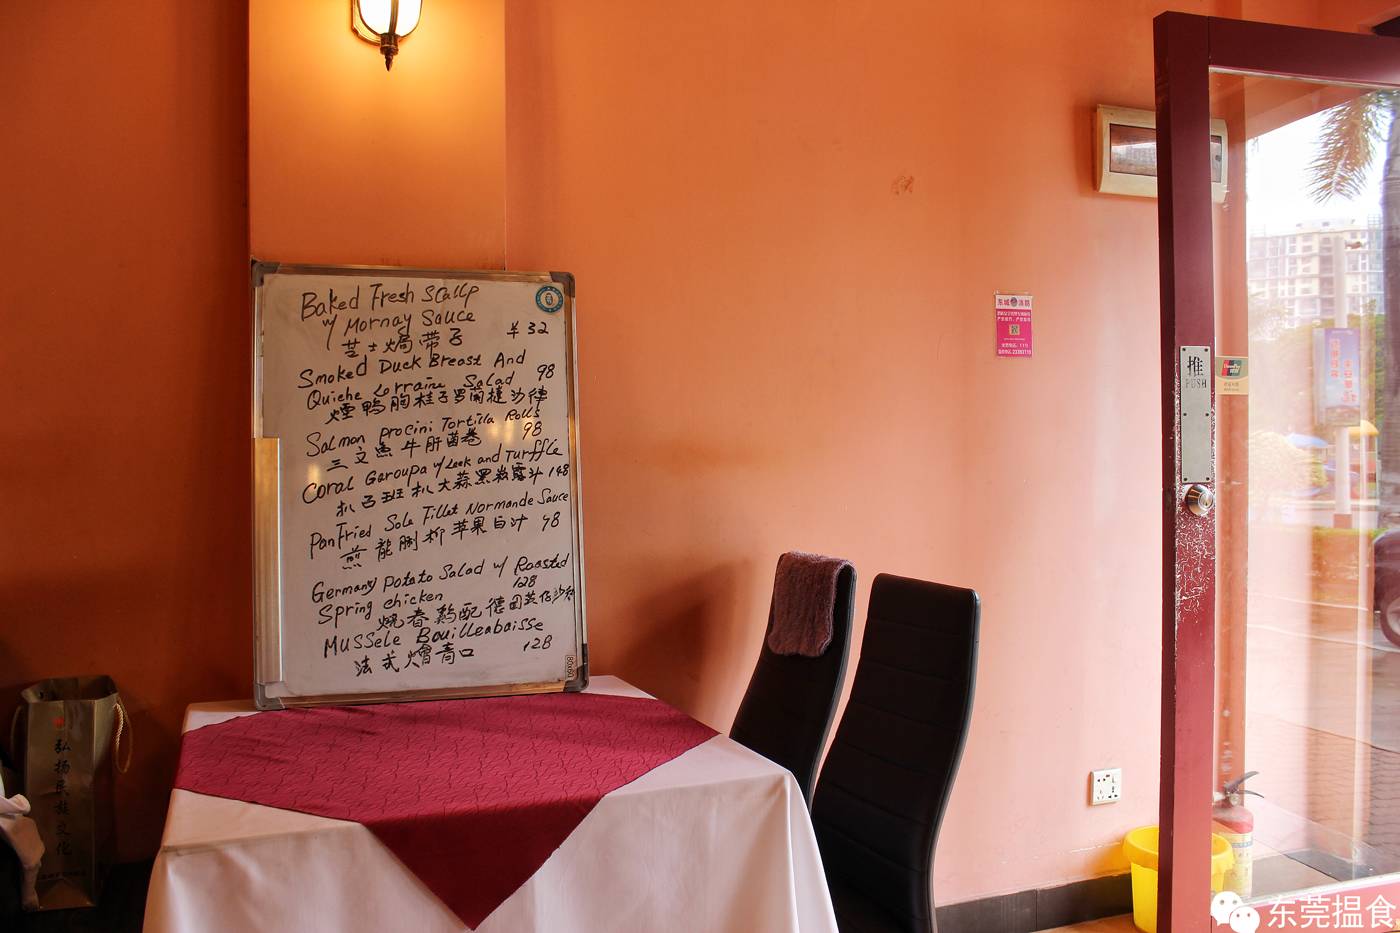 Baked Fresh Scallp
w/ Mornay Sauce
芝士焗带子 ¥32
Smoked Duck Breast And
Quiche Lorraine Salad 98
烟鸭胸桂子罗兰挞沙律
Salmon Procini Tortilla Rolls
三文鱼牛肝菌卷 98
Coral Garoupa w/ Leek and Turffle
扒西班扒大蒜黑松露汁 148
PanFried Sole Fillet Normande Sauce
煎龍脷柳苹果白汁 98
Germany Potato Salad w/ Roasted
Spring chicken 128
烧春鸡配德国薯仔沙律
Mussele Bouilleabaisse
法式烩青口 128
80x60
弘扬民族文化
东城消防
推
PUSH
东莞揾食